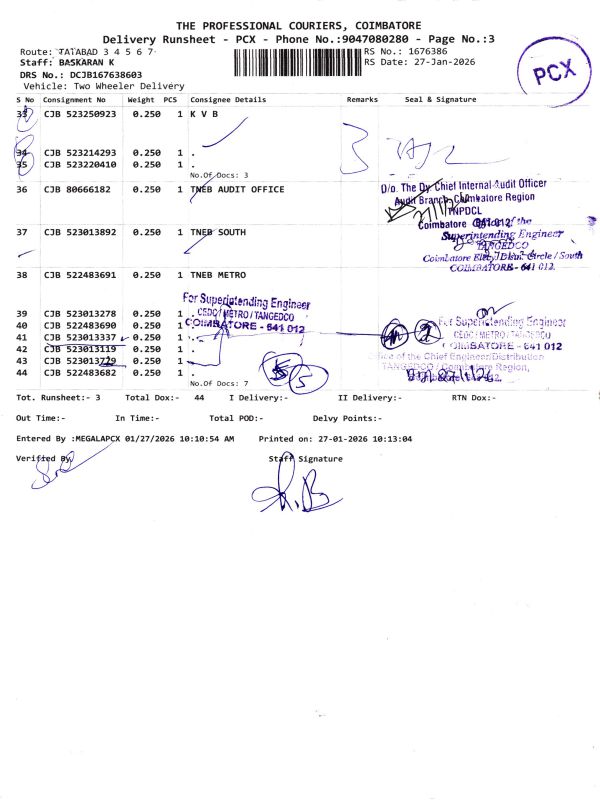 THE PROFESSIONAL COURIERS, COIMBATORE
Delivery Runsheet - PCX - Phone No.:9047080280 - Page No.:3
Route: TATABAD 3 4 5 6 7
RS No.: 1676386
Staff: BASKARAN K
RS Date: 27-Jan-2026
DRS No.: DCJB167638603
Vehicle: Two Wheeler Delivery
PCX
S No Consignment No Weight PCS Consignee Details Remarks Seal & Signature
33 CJB 523250923 0.250 1 K V B
34 CJB 523214293 0.250 1 .
35 CJB 523220410 0.250 1 .
No.Of Docs: 3
36 CJB 80666182 0.250 1 TNEB AUDIT OFFICE
O/o. The Dy. Chief Internal Audit Officer
Audit Branch, Coimbatore Region
TNPDCL
Coimbatore 641 012.
37 CJB 523013892 0.250 1 TNEB SOUTH
Office of the
Superintending Engineer
TANGEDCO
Coimbatore Elecy. Distn. Circle / South
COIMBATORE - 641 012.
38 CJB 522483691 0.250 1 TNEB METRO
For Superintending Engineer
CEDC/METRO/TANGEDCO
COIMBATORE - 641 012
39 CJB 523013278 0.250 1 .
40 CJB 522483690 0.250 1 .
41 CJB 523013337 0.250 1 .
42 CJB 523013119 0.250 1 .
43 CJB 523013729 0.250 1 .
44 CJB 522483682 0.250 1 .
No.Of Docs: 7
For Superintending Engineer
CEDC/METRO/TANGEDCO
COIMBATORE - 641 012
Office of the Chief Engineer/Distribution
TANGEDCO / Coimbatore Region,
Tot. Runsheet:- 3 Total Dox:- 44 I Delivery:- II Delivery:- RTN Dox:-
Out Time:- In Time:- Total POD:- Delvy Points:-
Entered By :MEGALAPCX 01/27/2026 10:10:54 AM Printed on: 27-01-2026 10:13:04
Verified By Staff Signature